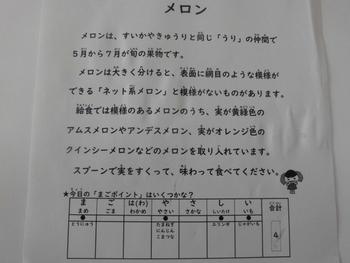 メロン
メロンは、すいかやきゅうりと同じ「うり」の仲間で
5月から7月が旬の果物です。
メロンは大きく分けると、表面に網目のような模様が
できる「ネット系メロン」と模様がないものがあります。
給食では模様のあるメロンのうち、実が黄緑色の
アムスメロンやアンデスメロン、実がオレンジ色の
クインシーメロンなどのメロンを取り入れています。
スプーンで実をすくって、味わって食べてください。
★今日の「まごポイント」はいくつかな?
ま ご は(わ) や さ し い 合計
まめ ごま わかめ やさい さかな しいたけ いも
● ● ● ● 4
とうにゅう たまねぎ エリンギ じゃがいも
にんじん
こまつな